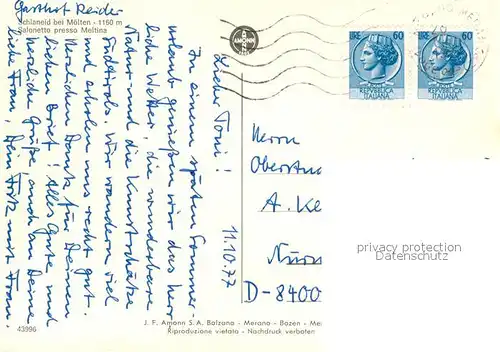 Gasthof Reider
Schlaneid bei Mölten - 1150 m
Salonetto presso Meltina
AMONN
LIRE 60
REPUBBLICA
ITALIANA
LIRE 60
REPUBBLICA
ITALIANA
11.10.77
Lieber Toni!
In einem späten Sommer-
urlaub genießen wir das herr
liche Wetter, die wunderbare
Natur und die Kunstschätze
Südtirols. Wir wandern viel
und erholen uns recht gut.
Herzlichen Dank für Deinen
lieben Brief! Alles Gute und
herzliche Grüße auch an Deine
liebe Frau, Dein Fritz mit Frau.
Herrn
Oberstu
A. Ke
Nürn
D-8400
privacy protection
Datenschutz
43996
J. F. Amonn S.A. Bolzano - Merano - Bozen - Me
Riproduzione vietata - Nachdruck verboten